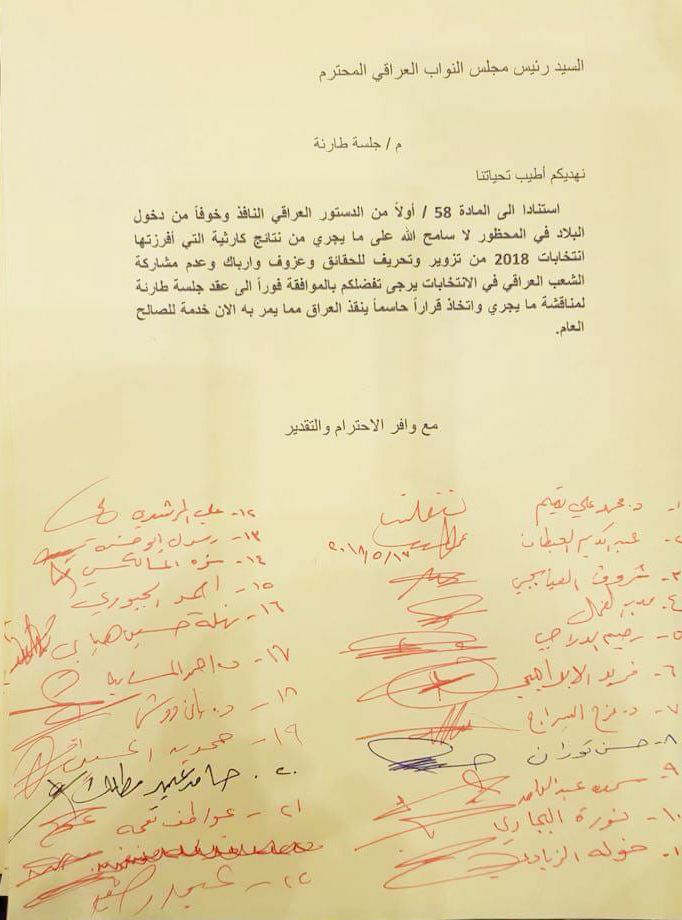 السيد رئيس مجلس النواب العراقي المحترم
م / جلسة طارئة
نهديكم أطيب تحياتنا
استنادا الى المادة 58 / أولاً من الدستور العراقي النافذ وخوفاً من دخول
البلاد في المحظور لا سامح الله على ما يجري من نتائج كارثية التي أفرزتها
انتخابات 2018 من تزوير وتحريف للحقائق وعزوف وارباك وعدم مشاركة
الشعب العراقي في الانتخابات يرجى تفضلكم بالموافقة فوراً الى عقد جلسة طارئة
لمناقشة ما يجري واتخاذ قراراً حاسماً ينقذ العراق مما يمر به الان خدمة للصالح
العام.
مع وافر الاحترام والتقدير
١- د. محمد علي تميم
٢- عبد الكريم العبطان
٣- شروق العبايجي
٤-
٥- رحيم الدراجي
٦- فريد الابراهيمي
٧- د. فرح السراج
٨- حسن توران
٩-
١٠- نورة البجاري
١١- خولة
١٢- علي
١٣- رسول
١٤-
١٥- احمد الجبوري
١٦- نهلة حسين
١٧- د. احمد
١٨- د.
١٩-
٢٠- حامد عبيد
٢١- عواطف نعمة
٢٢-